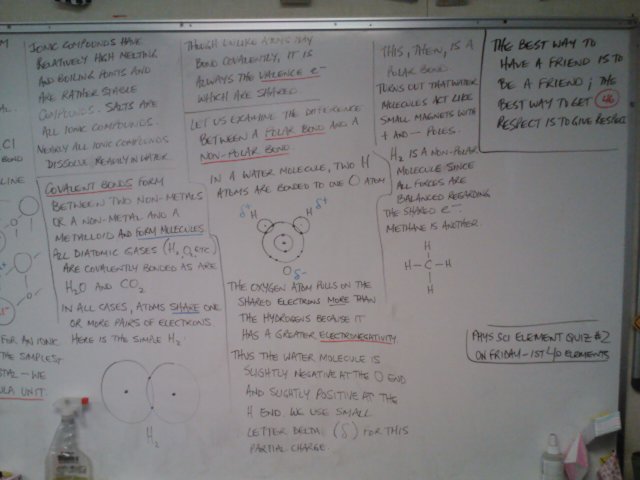 M
AL.
Cl
BOND
LINE
FOR AN IONIC
THE SIMPLEST
TAL - WE
ULA UNIT
IONIC COMPOUNDS HAVE
RELATIVELY HIGH MELTING
AND BOILING POINTS AND
ARE RATHER STABLE
COMPOUNDS. SALTS ARE
ALL IONIC COMPOUNDS.
NEARLY ALL IONIC COMPOUNDS
DISSOLVE READILY IN WATER.
COVALENT BONDS FORM
BETWEEN TWO NON-METALS
OR A NON-METAL AND A
METALLOID AND FORM MOLECULES.
ALL DIATOMIC GASES (H₂, O₂, ETC.)
ARE COVALENTLY BONDED AS ARE
H₂O AND CO₂
IN ALL CASES, ATOMS SHARE ONE
OR MORE PAIRS OF ELECTRONS
HERE IS THE SIMPLE H₂:
H₂
THOUGH UNLIKE ATOMS MAY
BOND COVALENTLY, IT IS
ALWAYS THE VALENCE e⁻
WHICH ARE SHARED.
LET US EXAMINE THE DIFFERENCE
BETWEEN A POLAR BOND AND A
NON-POLAR BOND.
IN A WATER MOLECULE, TWO H
ATOMS ARE BONDED TO ONE O ATOM
δ+ H H δ+
O δ-
THE OXYGEN ATOM PULLS ON THE
SHARED ELECTRONS MORE THAN
THE HYDROGENS BECAUSE IT
HAS A GREATER ELECTRONEGATIVITY
THUS THE WATER MOLECULE IS
SLIGHTLY NEGATIVE AT THE O END
AND SLIGHTLY POSITIVE AT THE
H END. WE USE SMALL
LETTER DELTA (δ) FOR THIS
PARTIAL CHARGE.
THIS, THEN, IS A
POLAR BOND.
TURNS OUT THAT WATER
MOLECULES ACT LIKE
SMALL MAGNETS WITH
+ AND - POLES.
H₂ IS A NON-POLAR
MOLECULE SINCE
ALL FORCES ARE
BALANCED REGARDING
THE SHARED e⁻.
METHANE IS ANOTHER.
H
H-C-H
H
THE BEST WAY TO
HAVE A FRIEND IS TO
BE A FRIEND; THE
BEST WAY TO GET
RESPECT IS TO GIVE RESPECT
PHYS SCI ELEMENT QUIZ #2
ON FRIDAY - 1ST 40 ELEMENTS